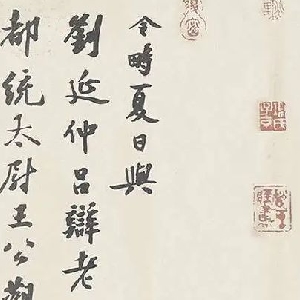 令畤夏日與
劉延仲呂辯老
都統太尉王公觀